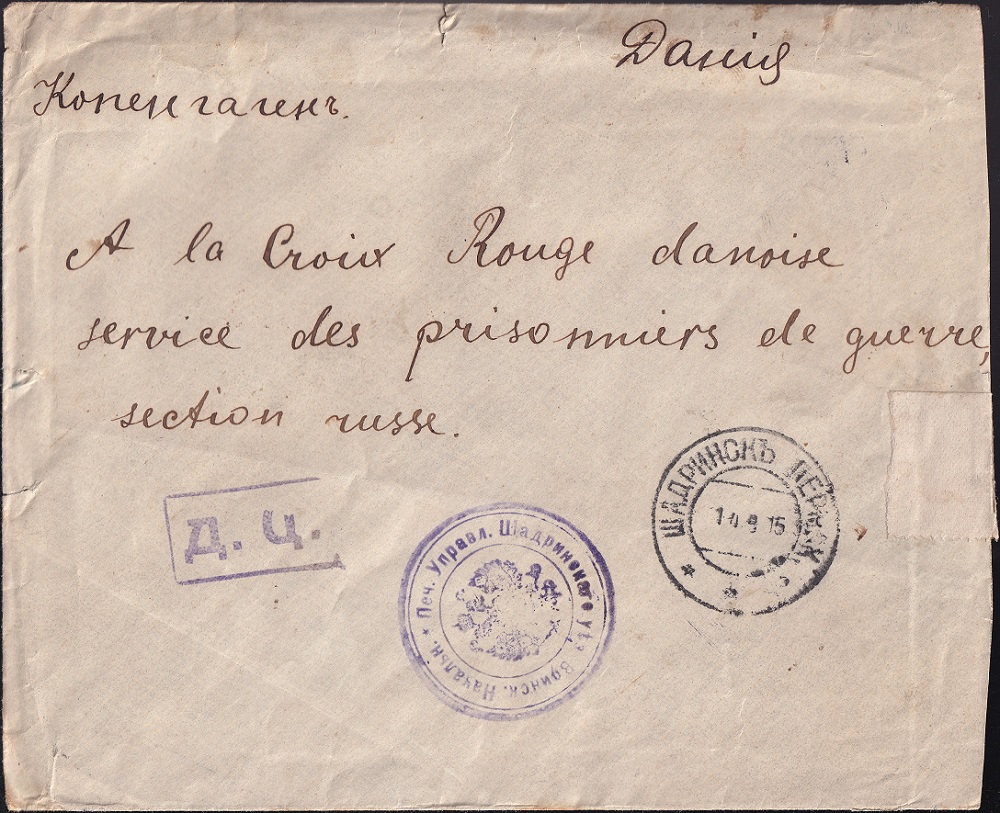 Данія
Копенгагенъ.
A la Croix Rouge danoise
service des prisonniers de guerre,
section russe.
Д. Ц.
Печ. Управл. Шадринскаго уѣз. Воинск. Начальн. *
ШАДРИНСКЪ ПЕРМСК